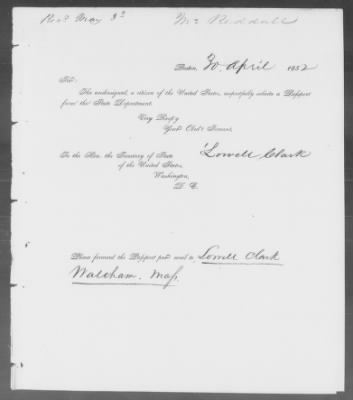 Recd May 3d Mr Reddall
Boston, 30. April 1852
Sir:
The undersigned, a citizen of the United States, respectfully solicits a Passport
from the State Department.
Very Resp'y
Your Obd't Servant.
To the Hon. the Secretary of State
of the United States,
Washington,
D. C.
Lowell Clark
Please forward the Passport per mail to Lowell Clark
Waltham. Mass.